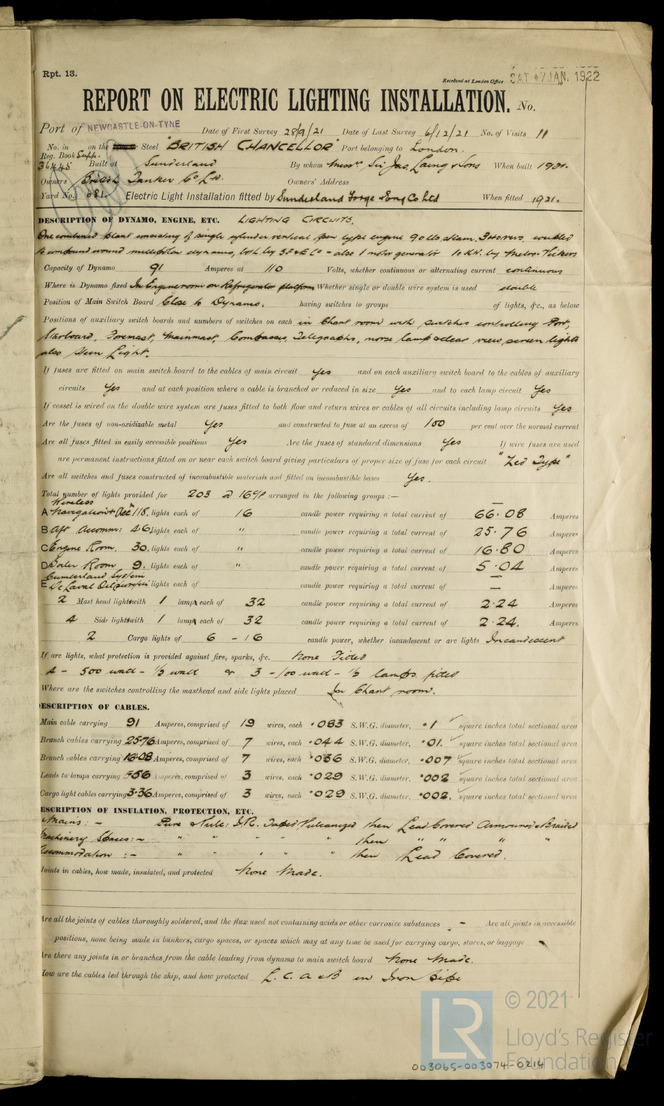 Rpt. 13.
Received at London Office SAT. 7 JAN. 1922
REPORT ON ELECTRIC LIGHTING INSTALLATION. No.
Port of NEWCASTLE-ON-TYNE Date of First Survey 28/9/21 Date of Last Survey 6/12/21 No. of Visits 11
No. in on the Steel "BRITISH CHANCELLOR" Port belonging to London.
Reg. Book Supp.
36448 Built at Sunderland By whom Messrs Sir Jas. Laing & Sons When built 1921.
Owners British Tanker Co Ld. Owners' Address
Yard No. 681 Electric Light Installation fitted by Sunderland Forge & Eng Co Ltd When fitted 1921.
DESCRIPTION OF DYNAMO, ENGINE, ETC. LIGHTING CIRCUITS.
One combined plant consisting of single cylinder vertical type engine 90 lb steam, coupled
to compound wound multipolar dynamo, both by S.F. & E. Co - also 1 motor generator 10 K.W. by Metro-Vickers
Capacity of Dynamo 91 Amperes at 110 Volts, whether continuous or alternating current continuous
Where is Dynamo fixed In Engine room on Refrigerator platform Whether single or double wire system is used double
Position of Main Switch Board Close to Dynamo. having switches to groups of lights, &c., as below
Positions of auxiliary switch boards and numbers of switches on each in Chart room with switches controlling Port,
Starboard, Foremast, Mainmast, Compasses, Telegraphs, morse lamp & clear view screen lights
also Stern Light.
If fuses are fitted on main switch board to the cables of main circuit yes and on each auxiliary switch board to the cables of auxiliary
circuits yes and at each position where a cable is branched or reduced in size yes and to each lamp circuit yes
If vessel is wired on the double wire system are fuses fitted to both flow and return wires or cables of all circuits including lamp circuits yes
Are the fuses of non-oxidizable metal yes and constructed to fuse at an excess of 100 per cent over the normal current
Are all fuses fitted in easily accessible positions yes Are the fuses of standard dimensions yes If wire fuses are used
are permanent instructions fitted on or near each switch board giving particulars of proper size of fuse for each circuit "Zed Type"
Are all switches and fuses constructed of incombustible materials and fitted on incombustible bases yes.
Total number of lights provided for 203 @ 16 c/p arranged in the following groups :—
Wireless
A Navigation & Acc 118. lights each of 16 candle power requiring a total current of 66.08 Amperes
B Aft Accomm: 46 lights each of " candle power requiring a total current of 25.76 Amperes
C Engine Room. 30. lights each of " candle power requiring a total current of 16.80 Amperes
D Boiler Room. 9. lights each of " candle power requiring a total current of 5.04 Amperes
E De Laval Oil lights each of candle power requiring a total current of — Amperes
2 Mast head lights with 1 lamps each of 32 candle power requiring a total current of 2.24 Amperes
4 Side lights with 1 lamps each of 32 candle power requiring a total current of 2.24. Amperes
2 Cargo lights of 6 - 16 candle power, whether incandescent or arc lights Incandescent
If arc lights, what protection is provided against fire, sparks, &c. None Fitted
4 - 500 watt - ½ watt & 3 - 100 watt - ½ lamps fitted
Where are the switches controlling the masthead and side lights placed In Chart room.
DESCRIPTION OF CABLES.
Main cable carrying 91 Amperes, comprised of 19 wires, each .083 S.W.G. diameter, .1 square inches total sectional area
Branch cables carrying 25.76 Amperes, comprised of 7 wires, each .044 S.W.G. diameter, .01. square inches total sectional area
Branch cables carrying 16.08 Amperes, comprised of 7 wires, each .036 S.W.G. diameter, .007 square inches total sectional area
Leads to lamps carrying .56 Amperes, comprised of 3 wires, each .029 S.W.G. diameter, .002 square inches total sectional area
Cargo light cables carrying 3.36 Amperes, comprised of 3 wires, each .029 S.W.G. diameter, .002. square inches total sectional area
DESCRIPTION OF INSULATION, PROTECTION, ETC.
Mains :- Pure & Vulc: I.R. Taped Vulcanized then Lead Covered Armoured & Braided
Machinery Spaces :- " " " " " then " " "
Accommodation :- " " " " " then Lead Covered.
Joints in cables, how made, insulated, and protected None Made.
Are all the joints of cables thoroughly soldered, and the flux used not containing acids or other corrosive substances - Are all joints in accessible
positions, none being made in bunkers, cargo spaces, or spaces which may at any time be used for carrying cargo, stores, or baggage -
Are there any joints in or branches from the cable leading from dynamo to main switch board None Made.
How are the cables led through the ship, and how protected L.C.A & B in Iron Pipe
LR © 2021
Lloyd's Register
Foundation
003065-003074-0214